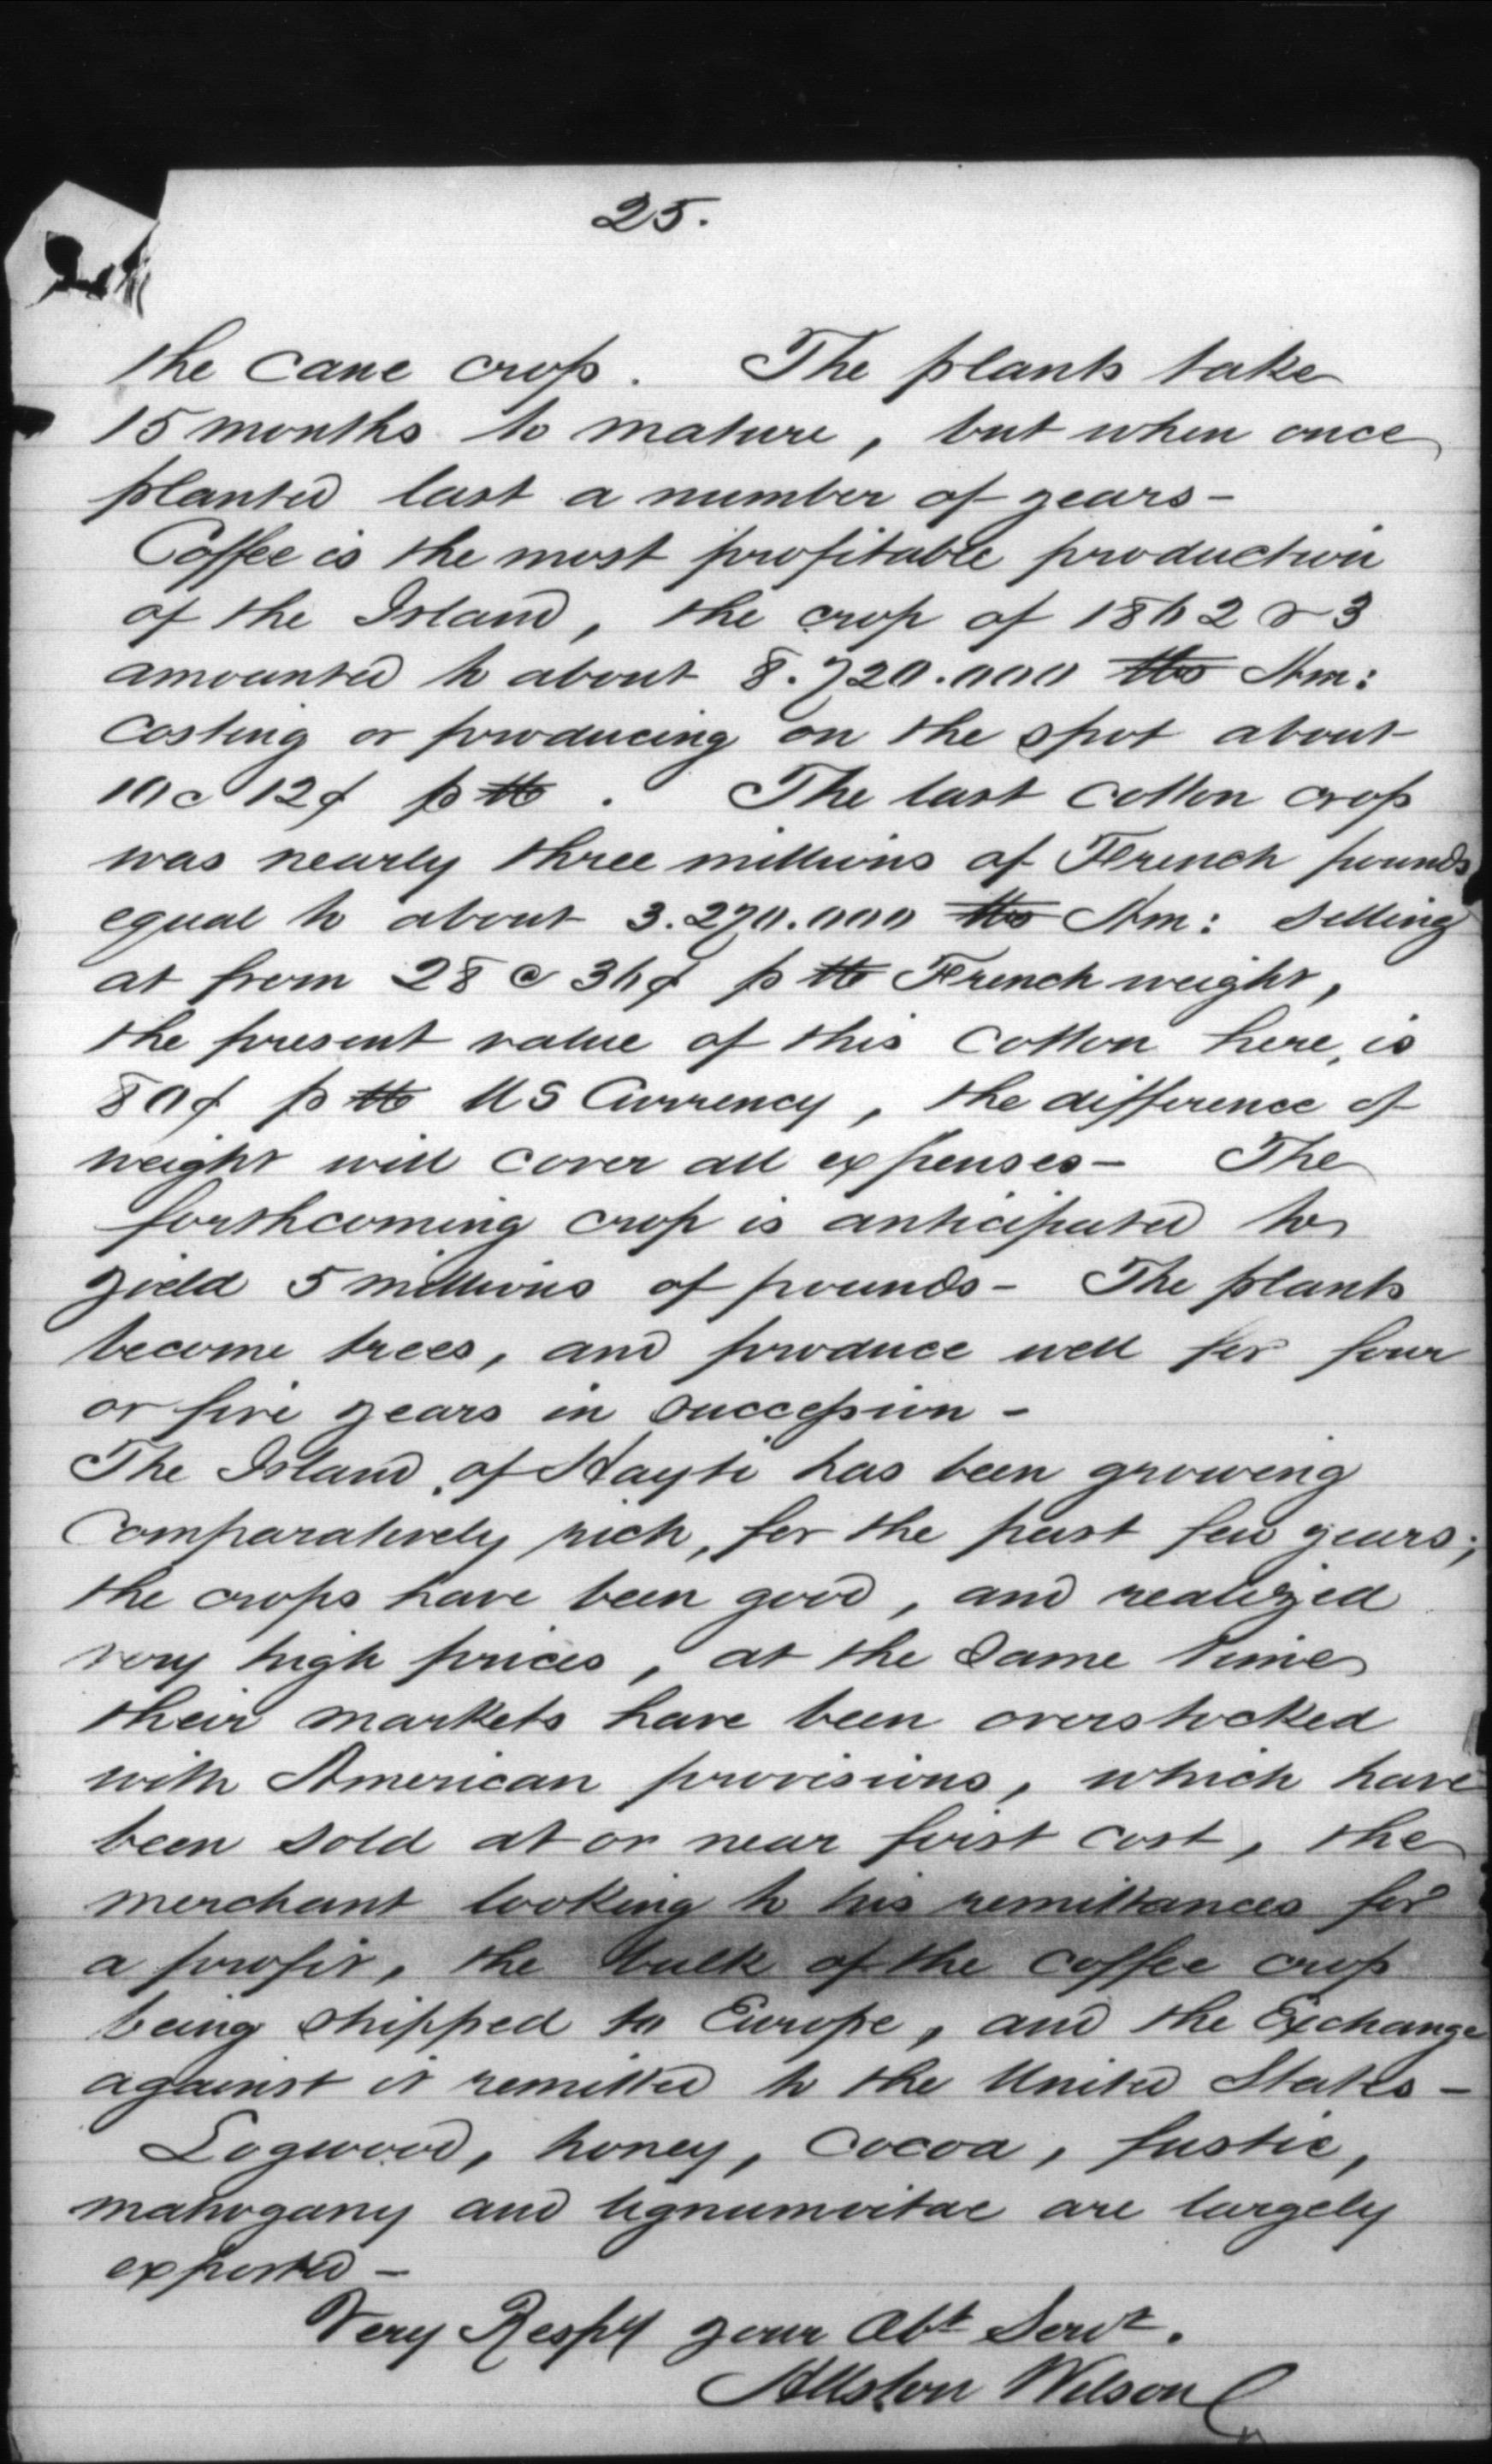 25.
the cane crop. The plants take
15 months to mature, but when once
planted last a number of years-
Coffee is the most profitable production
of the Island, the crop of 1862 & 3
amounted to about 8.720.000 lbs Am:
costing or producing on the spot about
10 c 12¢ p lb. The last cotton crop
was nearly three millions of French pounds
equal to about 3.270.000 lbs Am: selling
at from 28 @ 36¢ p lb French weight,
the present value of this cotton here, is
80¢ p lb US Currency, the difference of
weight will cover all expenses- The
forthcoming crop is anticipated to
yield 5 millions of pounds- The plants
become trees, and produce well for four
or five years in succession-
The Island, of Hayti has been growing
comparatively rich, for the past few years;
the crops have been good, and realized
very high prices, at the same time
their markets have been overstocked
with American provisions, which have
been sold at or near first cost, the
merchant looking to his remittances for
a profit, the bulk of the coffee crop
being shipped to Europe, and the Exchange
against it remitted to the United States-
Logwood, honey, cocoa, fustic,
mahogany and lignumvitae are largely
exported-
Very Respy your Obt Servt.
Allston Wilson